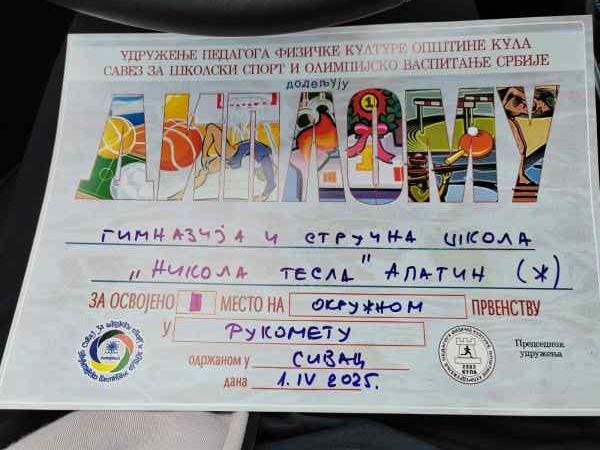 УДРУЖЕЊЕ ПЕДАГОГА ФИЗИЧКЕ КУЛТУРЕ ОПШТИНЕ КУЛА
САВЕЗ ЗА ШКОЛСКИ СПОРТ И ОЛИМПИЈСКО ВАСПИТАЊЕ СРБИЈЕ
додељују
ДИПЛОМУ
ГИМНАЗИЈА И СТРУЧНА ШКОЛА
„НИКОЛА ТЕСЛА" АПАТИН (Ж)
ЗА ОСВОЈЕНО МЕСТО НА ОКРУЖНОМ ПРВЕНСТВУ
У РУКОМЕТУ
Председник
удружења
одржаном у СИВАЦ
дана 1. IV 2025.